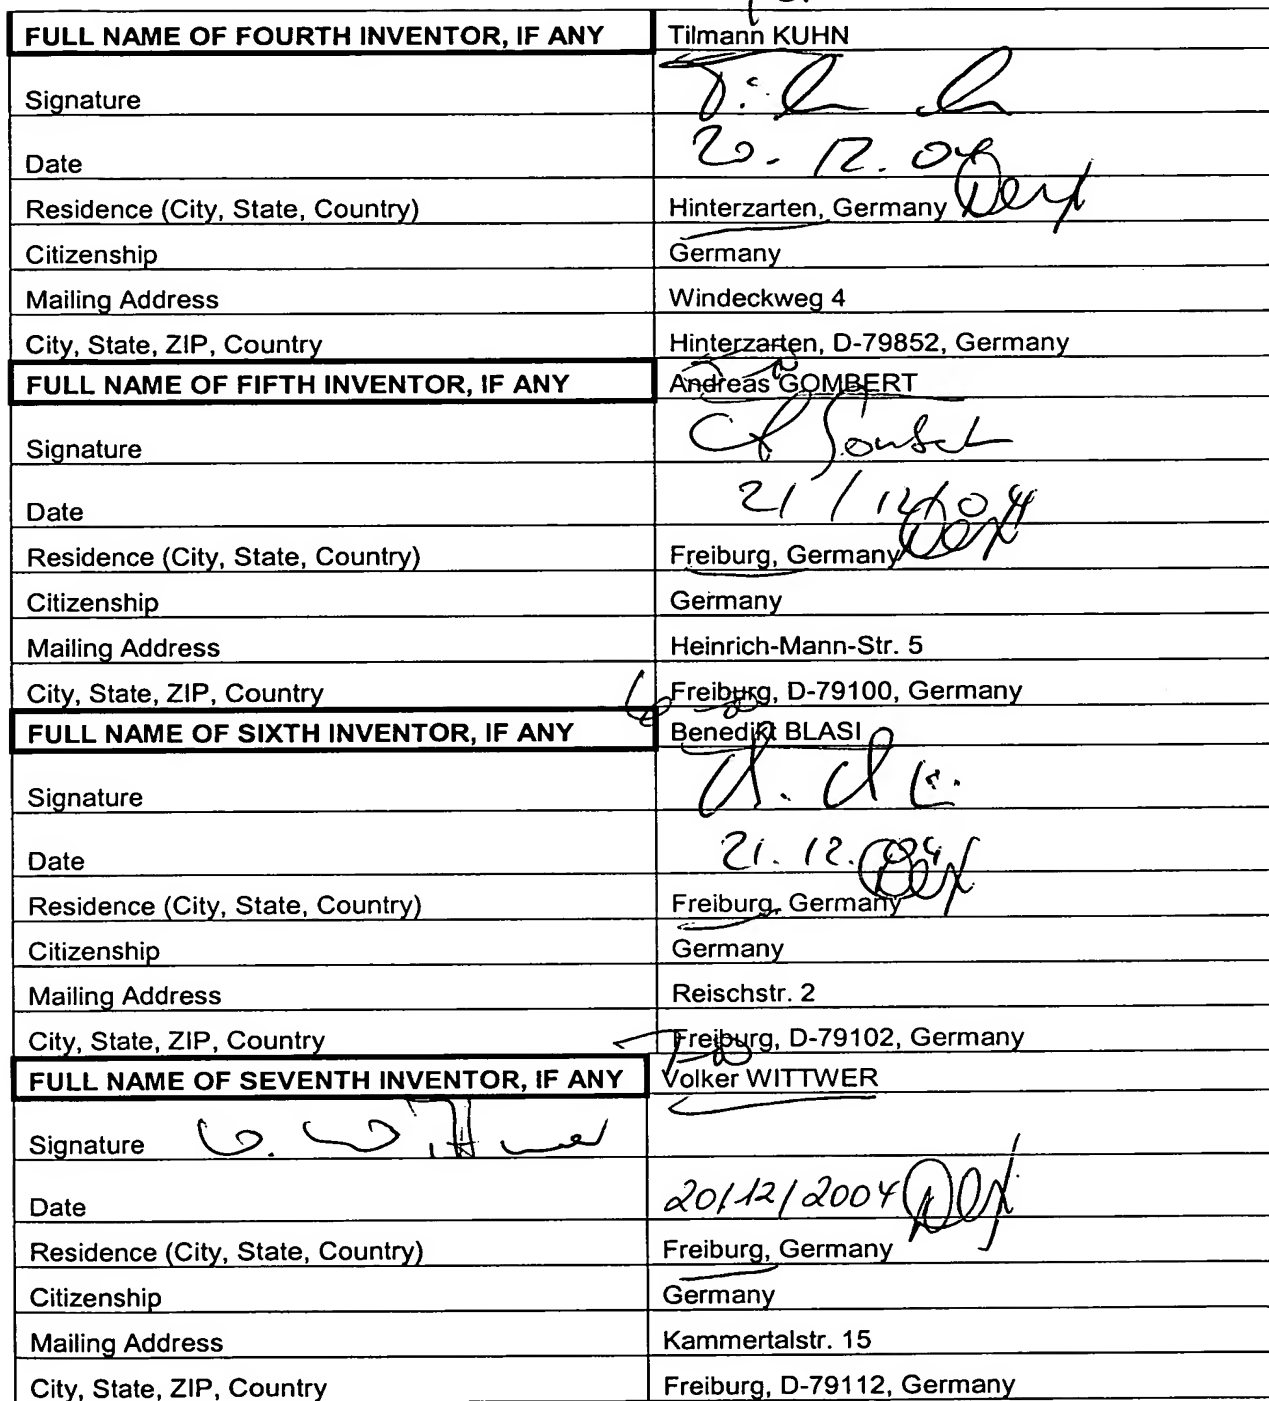 FULL NAME OF FOURTH INVENTOR, IF ANY Tilmann KUHN
Signature
Date 20. 12. 04
Residence (City, State, Country) Hinterzarten, Germany
Citizenship Germany
Mailing Address Windeckweg 4
City, State, ZIP, Country Hinterzarten, D-79852, Germany
FULL NAME OF FIFTH INVENTOR, IF ANY Andreas GOMBERT
Signature
Date 21/12/04
Residence (City, State, Country) Freiburg, Germany
Citizenship Germany
Mailing Address Heinrich-Mann-Str. 5
City, State, ZIP, Country Freiburg, D-79100, Germany
FULL NAME OF SIXTH INVENTOR, IF ANY Benedikt BLASI
Signature
Date 21. 12. 04
Residence (City, State, Country) Freiburg, Germany
Citizenship Germany
Mailing Address Reischstr. 2
City, State, ZIP, Country Freiburg, D-79102, Germany
FULL NAME OF SEVENTH INVENTOR, IF ANY Volker WITTWER
Signature
Date 20/12/2004
Residence (City, State, Country) Freiburg, Germany
Citizenship Germany
Mailing Address Kammertalstr. 15
City, State, ZIP, Country Freiburg, D-79112, Germany